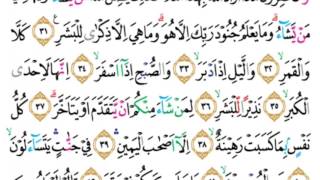 مَنْ يَّشَاۤءُۗ وَمَا يَعْلَمُ جُنُوْدَ رَبِّكَ اِلَّا هُوَۗ وَمَا هِيَ اِلَّا ذِكْرٰى لِلْبَشَرِ ࣖ ٣١ كَلَّا
وَالْقَمَرِۙ وَالَّيْلِ اِذْ اَدْبَرَۙ ٣٣ وَالصُّبْحِ اِذَآ اَسْفَرَۙ ٣٤ اِنَّهَا لَاِحْدَى
الْكُبَرِۙ ٣٥ نَذِيْرًا لِّلْبَشَرِۙ ٣٦ لِمَنْ شَاۤءَ مِنْكُمْ اَنْ يَّتَقَدَّمَ اَوْ يَتَاَخَّرَۗ ٣٧ كُلُّ
نَفْسٍۢ بِمَا كَسَبَتْ رَهِيْنَةٌۙ ٣٨ اِلَّآ اَصْحٰبَ الْيَمِيْنِ ۛ ٣٩ فِيْ جَنّٰتٍ ۛ يَتَسَاۤءَلُوْنَۙ